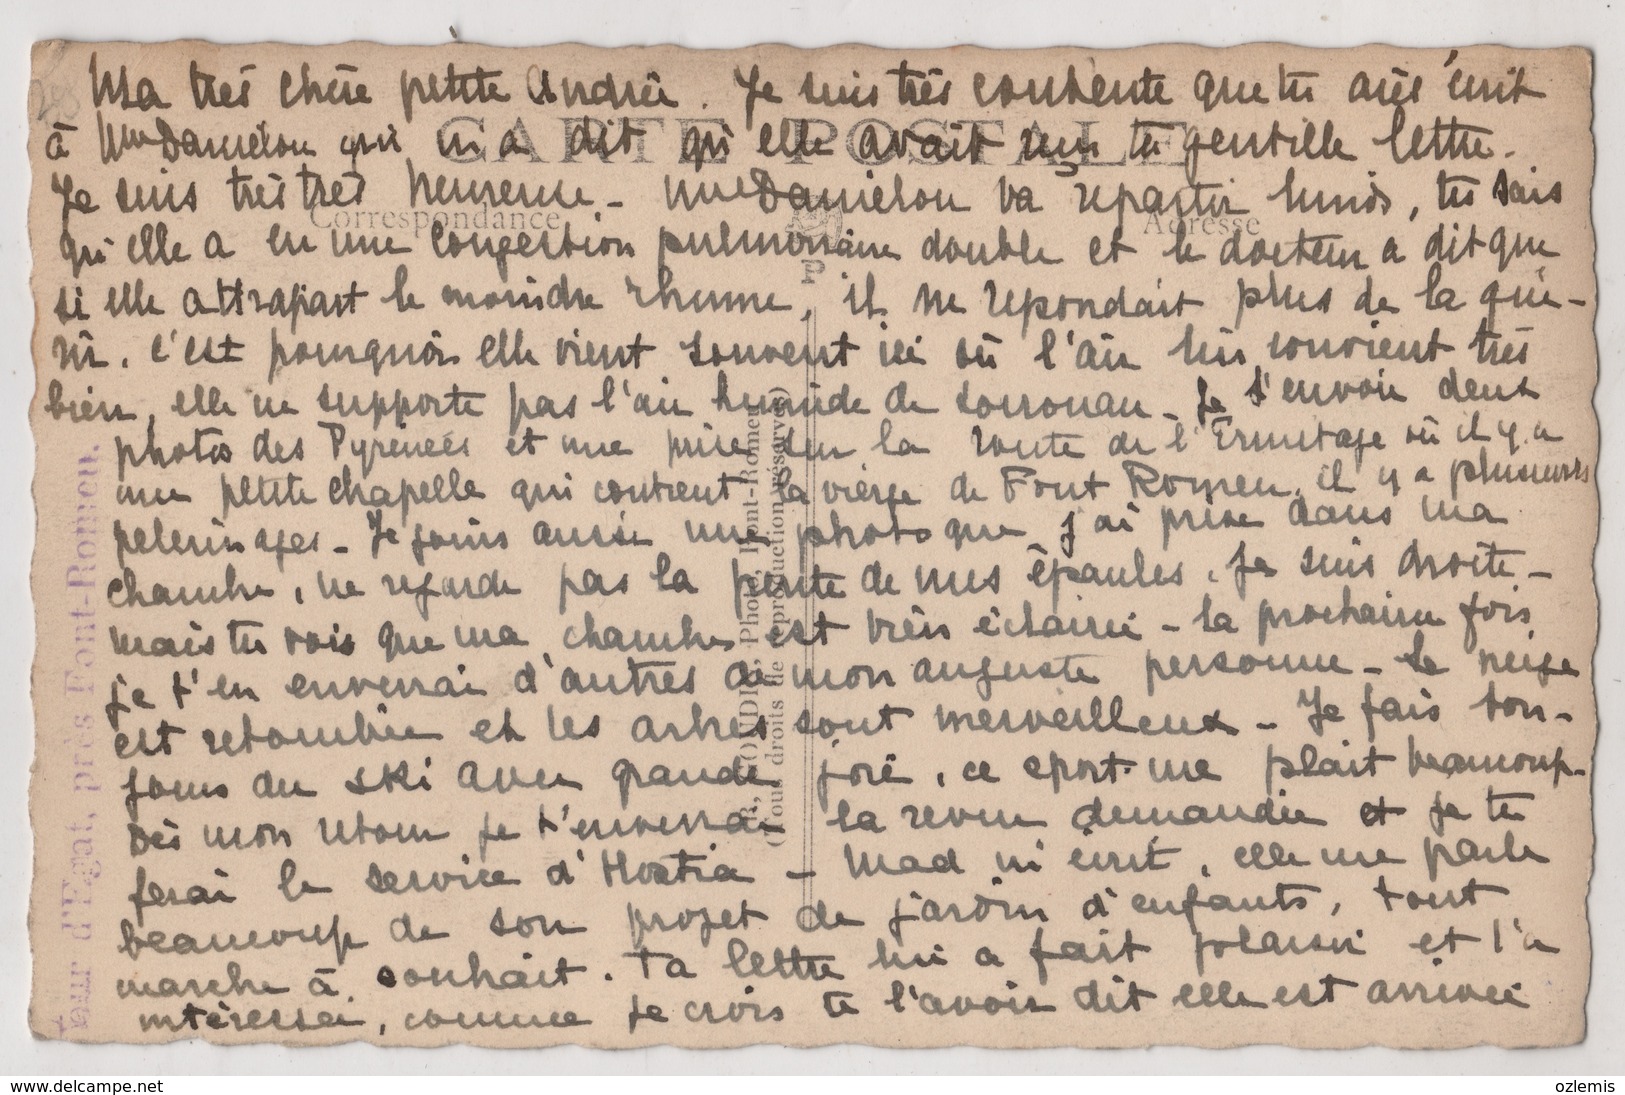 Ma très chère petite Andrée. Je suis très contente que tu aies écrit
à Mme Daniélou qui m'a dit qu'elle avait reçu ta gentille lettre.
Je suis très très heureuse. - Mme Daniélou va repartir lundi, tu sais
qu'elle a eu une congestion pulmonaire double et le docteur a dit que
si elle attrapait le moindre rhume, il ne répondait plus de la gué-
rir. C'est pourquoi elle vient souvent ici où l'air lui convient très
bien, elle ne supporte pas l'air humide de - Je t'envoie deux
photos des Pyrénées et une prise sur la route de l'Ermitage où il y a
une petite chapelle qui contient la vierge de Font Romeu, il y a plusieurs
pelerinages - Je joins aussi une photo que j'ai prise dans ma
chambre, ne regarde pas la pente de mes épaules, je suis droite -
mais tu vois que ma chambre est bien éclairée - la prochaine fois
je t'en enverrai d'autres de mon auguste personne - La neige
est retombée et les arbres sont merveilleux - Je fais tou-
jours du ski avec grande joie, ce sport me plait beaucoup.
Dès mon retour je t'enverrai la revue demandée et je te
ferai le service d'Hostia - Mad m'écrit, elle me parle
beaucoup de son projet de jardin d'enfants, tout
marche à souhait. Ta lettre lui a fait plaisir et l'a
intéressée, comme je crois te l'avoir dit elle est arrivée
CARTE POSTALE
Correspondance
Adresse
P
Photo, Font-Romeu
(Tous droits de reproduction réservés)
d'Egat, près Font-Romeu.
www.delcampe.net
ozlemis